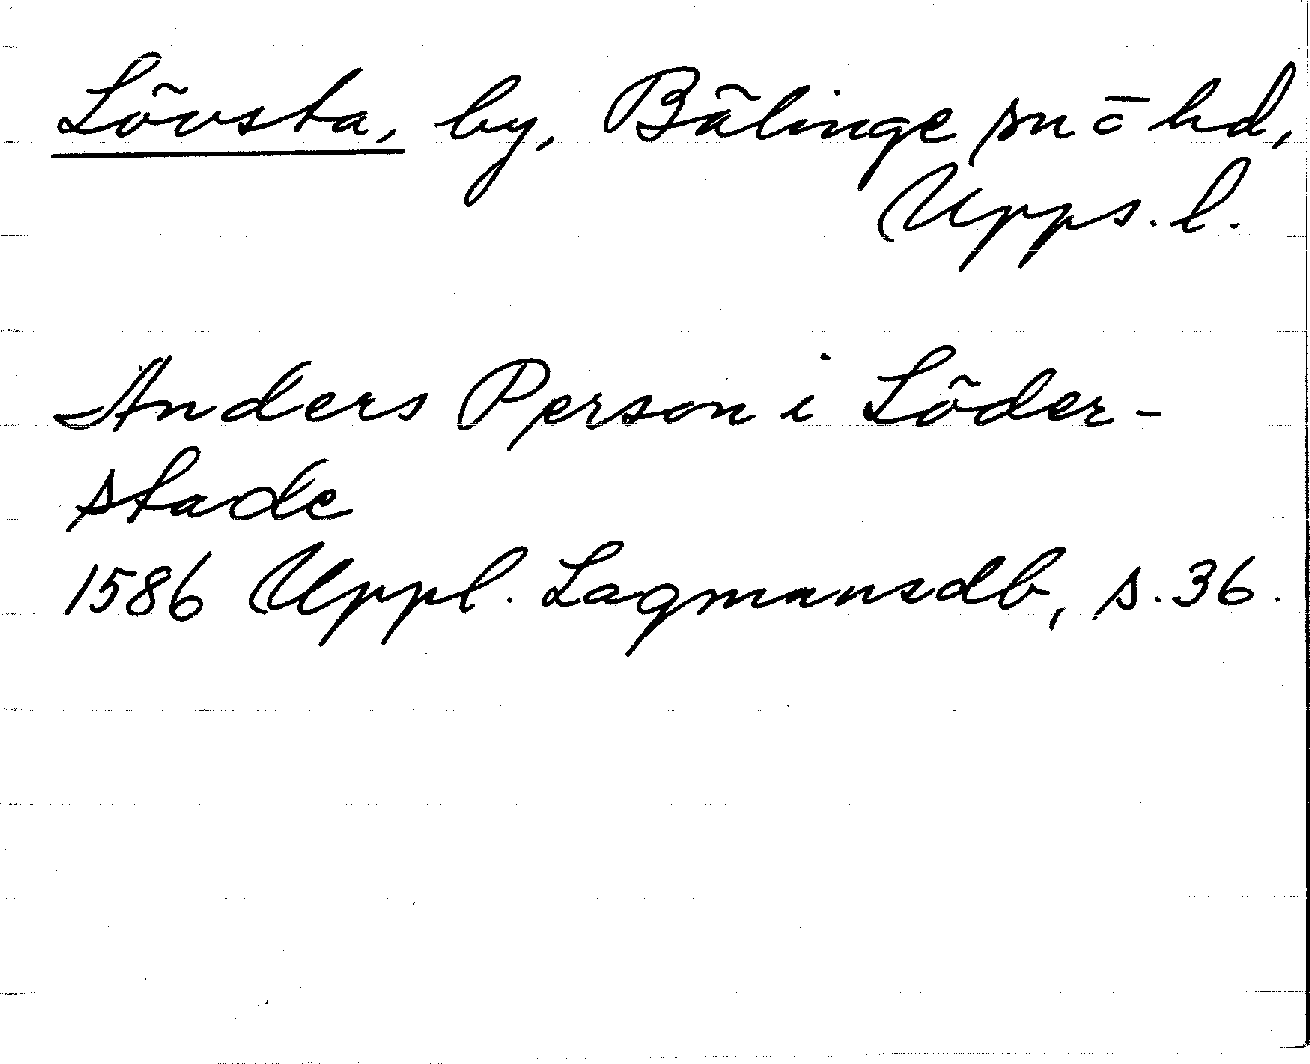 Lövsta, by, Bälinge sn o hd,
Upps. l.
Anders Person i Löder-
stade
1586 Uppl. Lagmansdb, s. 36.